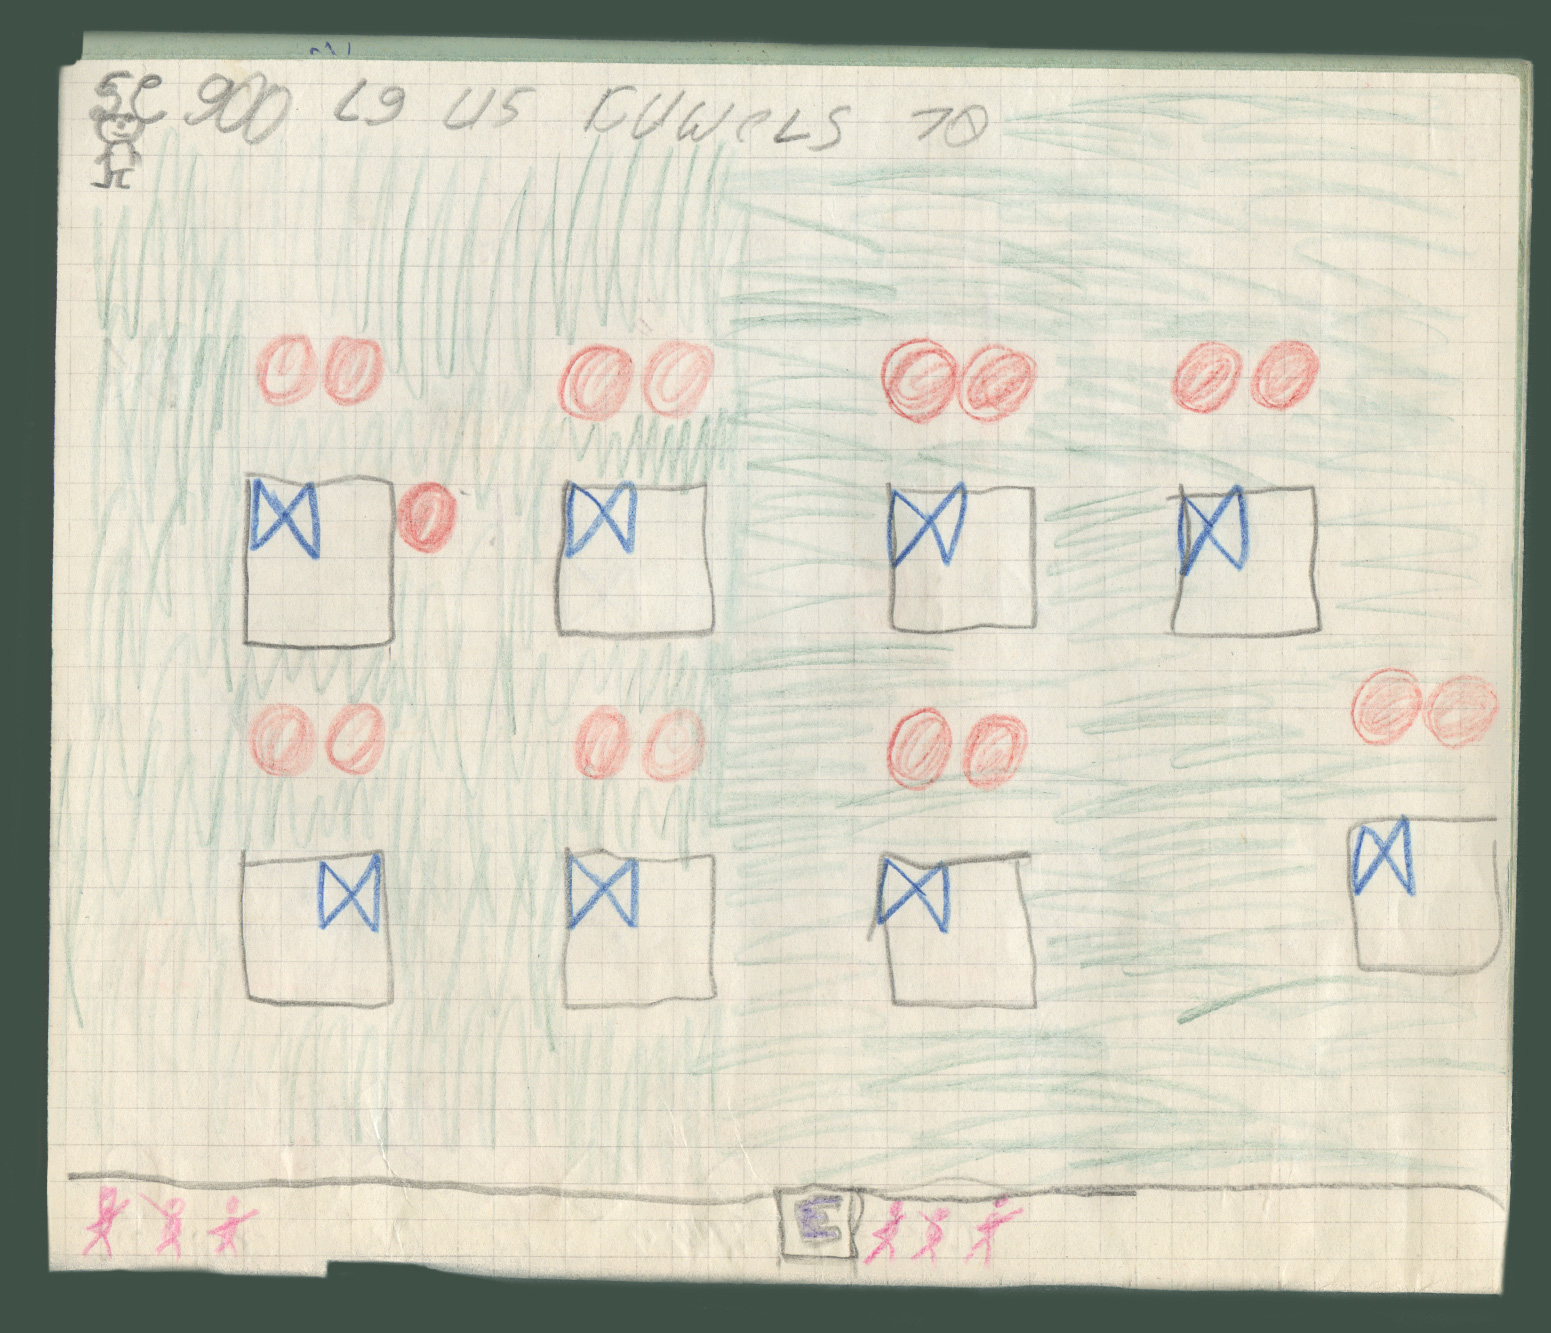 SC 900 L9 US KUWELS 70
E